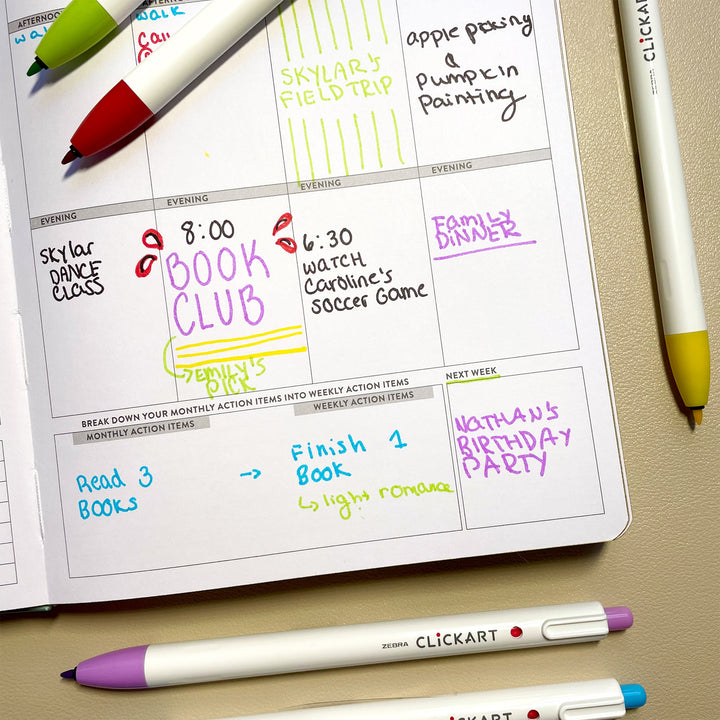 AFTERNOO
walk
walk
SKYLAR'S
FIELD TRIP
apple picking
&
Pumpkin
Painting
EVENING
EVENING
EVENING
EVENING
Skylar
DANCE
CLASS
8:00
BOOK
CLUB
EMILY'S
PICK
6:30
WATCH
Caroline's
soccer Game
Family
DINNER
BREAK DOWN YOUR MONTHLY ACTION ITEMS INTO WEEKLY ACTION ITEMS
MONTHLY ACTION ITEMS
WEEKLY ACTION ITEMS
Read 3
BOOKS
→
Finish 1
Book
↳ light romance
NEXT WEEK
NATHAN'S
BIRTHDAY
PARTY
ZEBRA CLiCKART
ZEBRA CLiCKART
CLiCKART